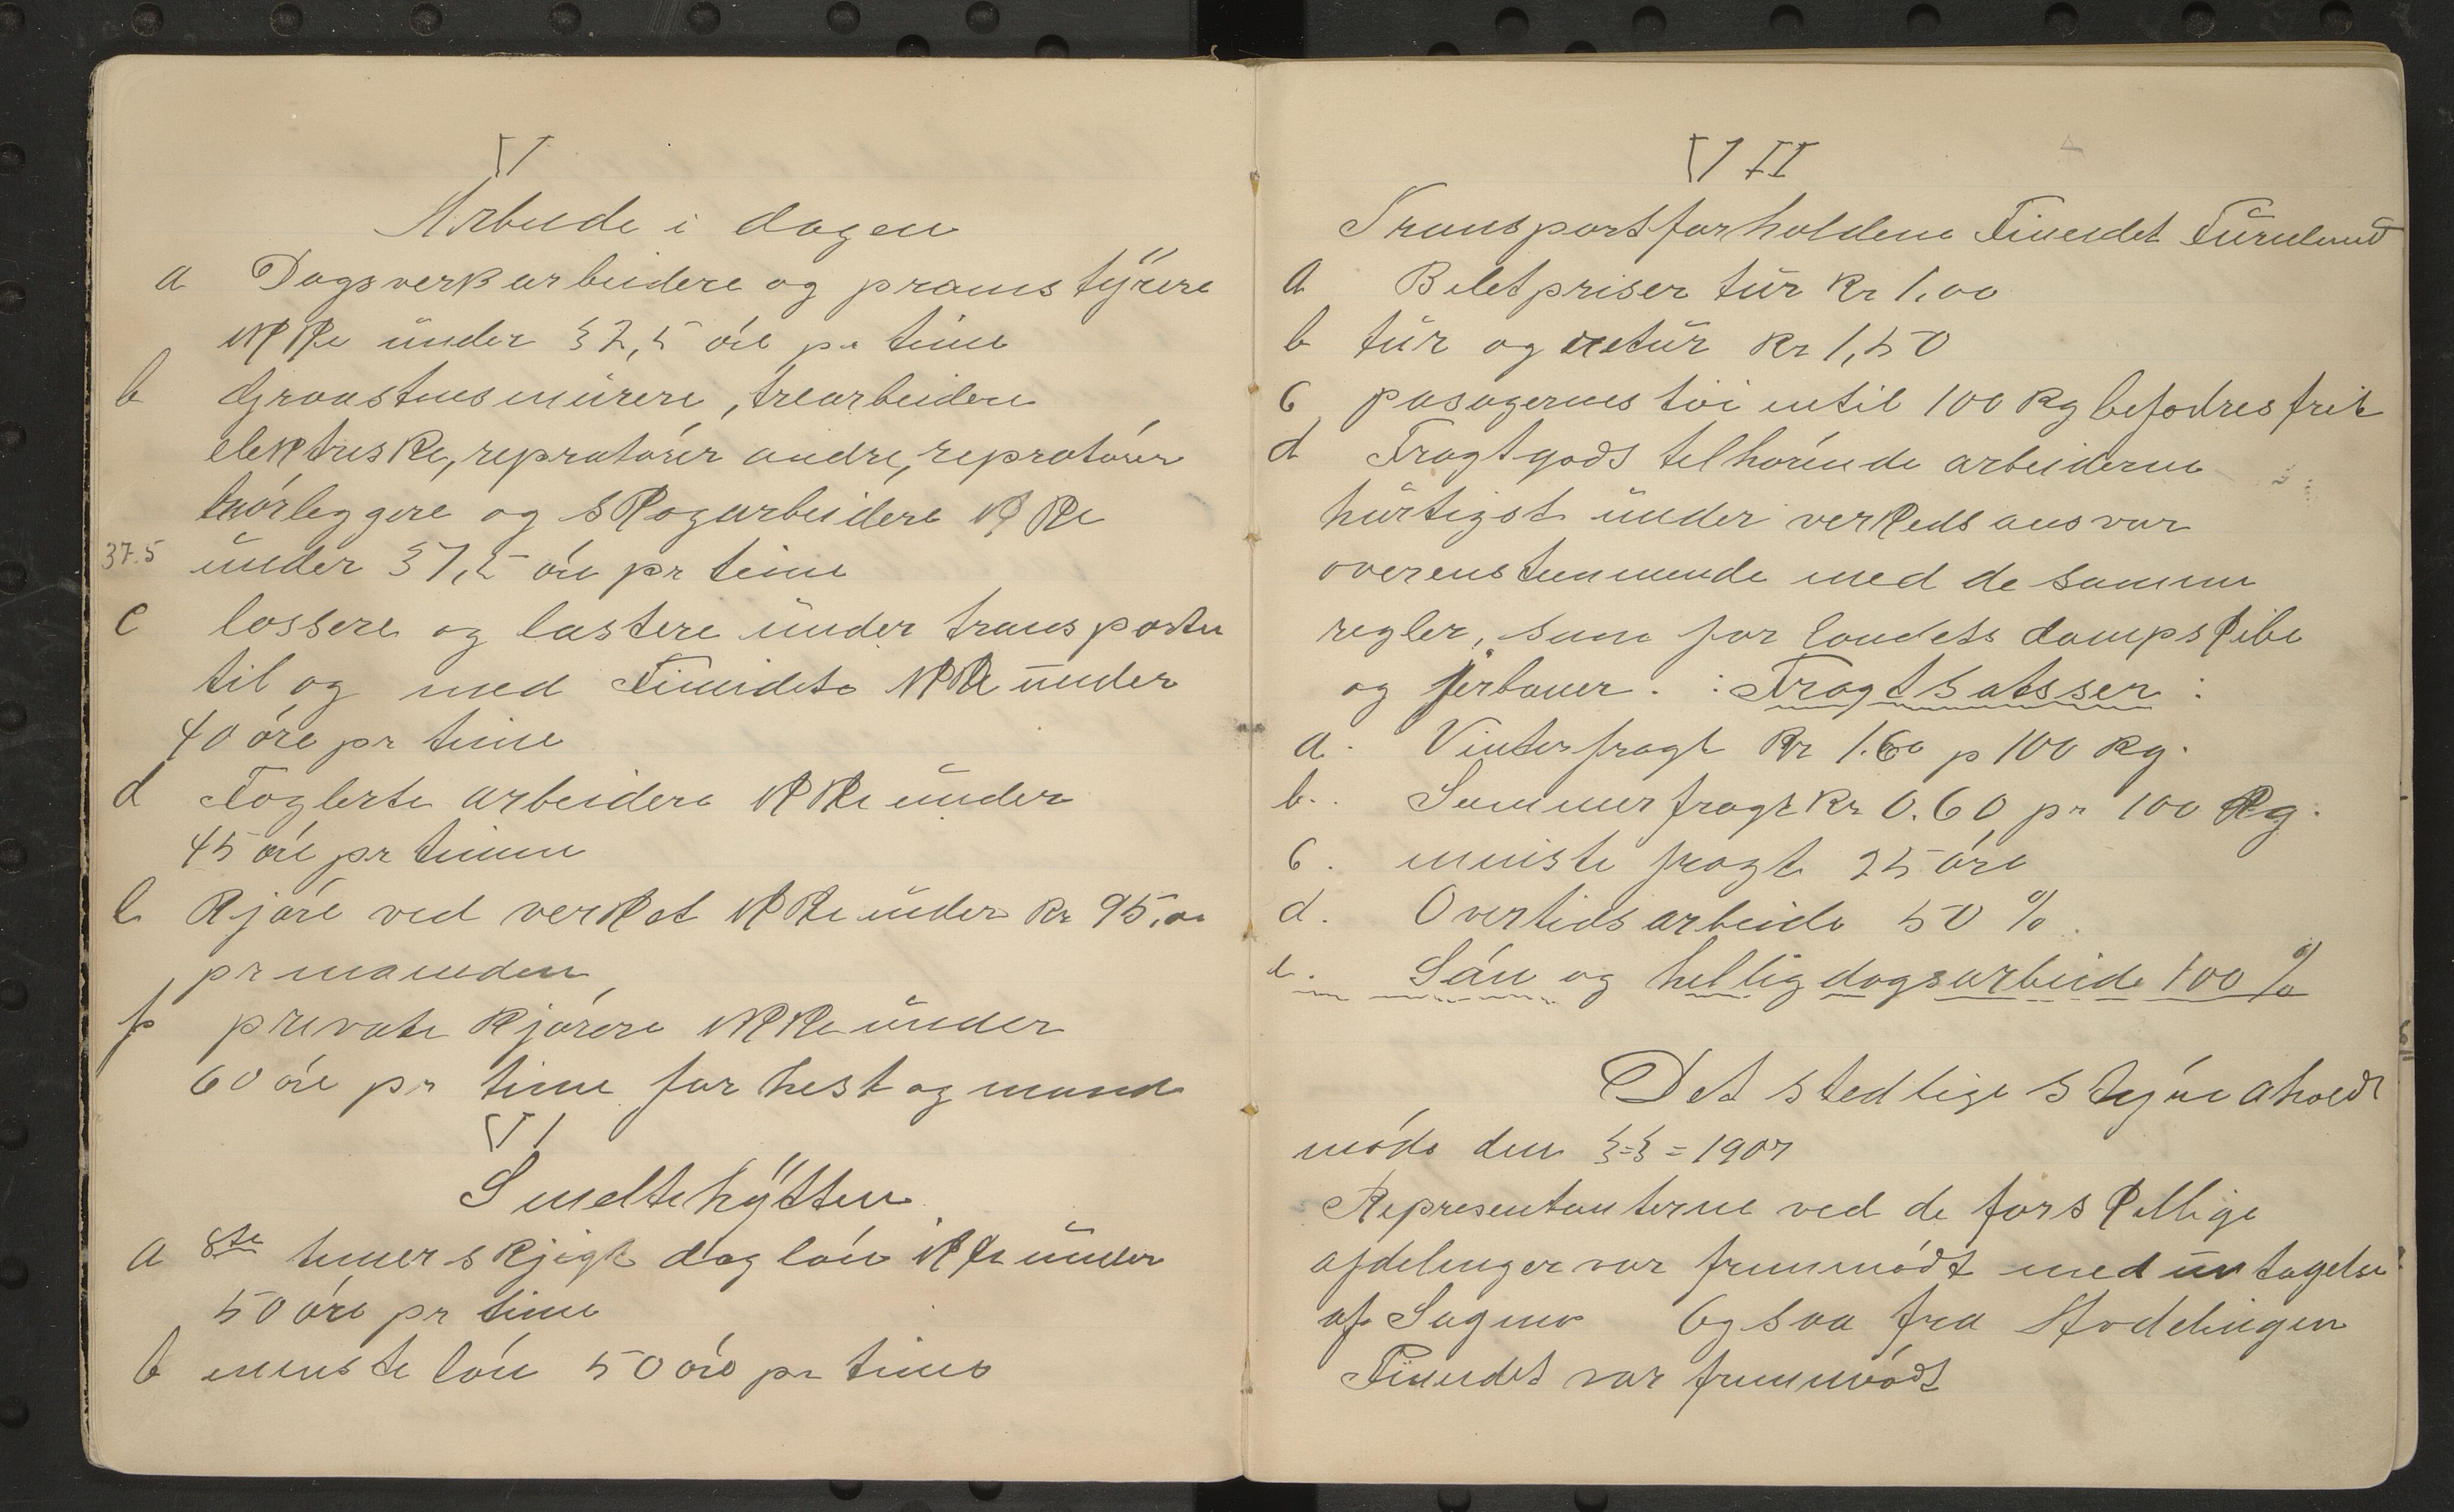 V
Arbeide i dagen
a Dagsverkarbeidere og pramstyrere
ikke under 37,5 öre pr time
b Graastensmurere, trearbeidere
elektriske, repratörer andre, repratörer
rörleggere og skogarbeidere ikke
37.5 under 37,5 öre pr time
c lossere og lastere under transporten
til og med Fineidet ikke under
40 öre pr time
d Faglerte arbeidere ikke under
45 öre pr timen
e Kjöre ved verket ikke under kr 95,00
pr maaneden
f private kjörere ikke under
60 öre pr time for hest og mand
VI
Smeltehytten
a 8te timer skjigt daglön ikke under
50 öre pr time
b minste lön 50 öre pr time
VII
Transportforholdene Fineidet Furulund
a Biletpriser tur Kr 1,00
b tur og retur Kr 1,50
c pasagernes töi intil 100 kg befodres frit
d Fragtgods tilhörende arbeiderne
hurtigst under verkeds ansvar
overenstemmende med de samme
regler, som for landets dampskibe
og jerbaner. : Fragtsatsser :
a. Vinterfragt Kr 1.60 p 100 kg.
b. Sommerfragt Kr 0.60 pr 100 kg.
c. minste fragt 25 öre
d. Overtidsarbeide 50 %.
e. Sön og helligdagsarbeide 100 %
Det stedlige styre aholdt
möde den 3=3=1907
Representanterne ved de forskellige
afdelinger var fremmödt med untagelse
af Sagmo Ogsaa fra Avdelingen
Fineidet var fremmödt